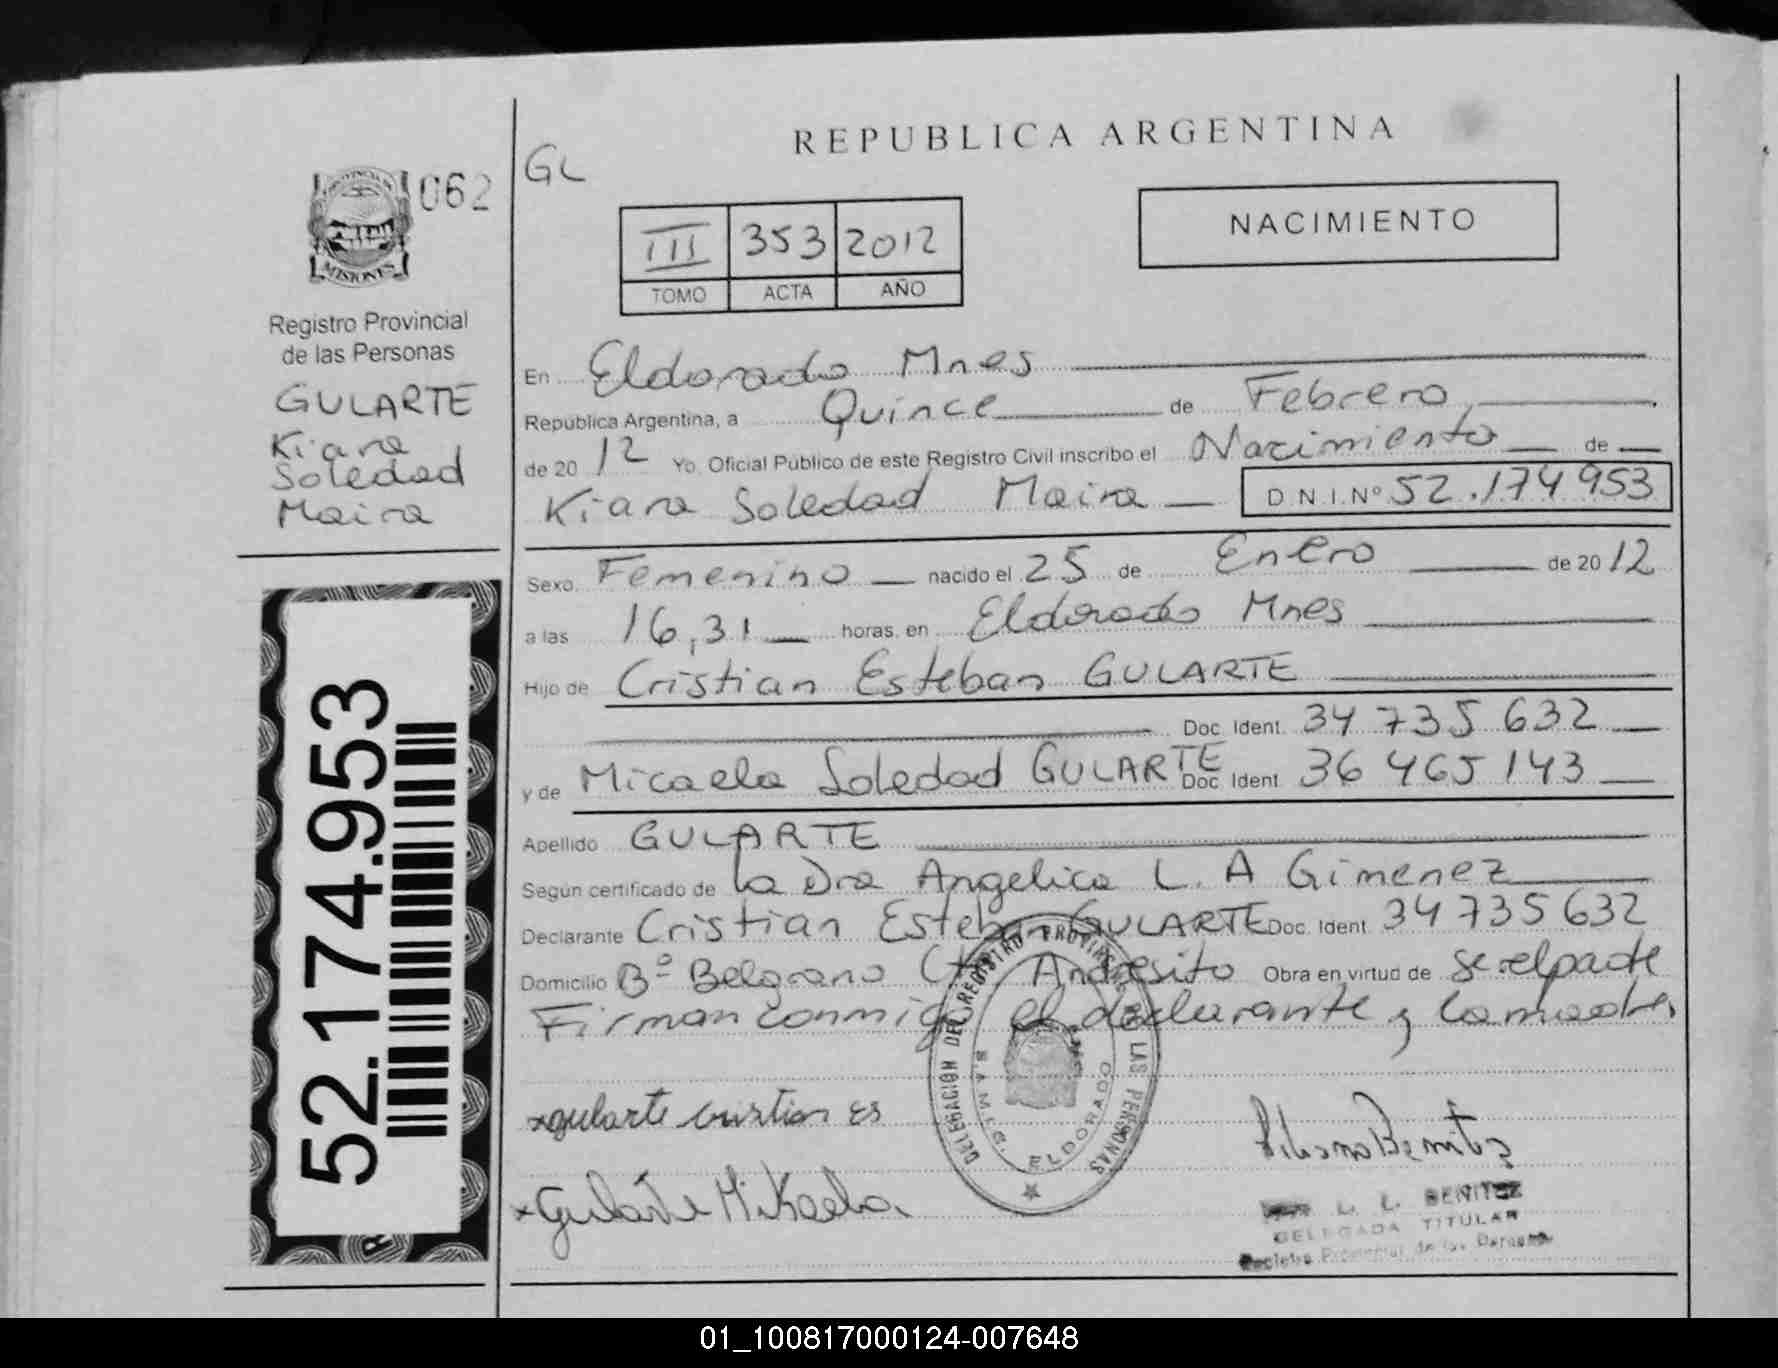 REPUBLICA ARGENTINA
GL
062
PROVINCIA DE
MISIONES
Registro Provincial
de las Personas
GULARTE
Kiara
Soledad
Maira
52.174.953
III 353 2012
TOMO ACTA AÑO
NACIMIENTO
En Eldorado Mnes
Republica Argentina, a Quince de Febrero,
de 2012 Yo, Oficial Público de este Registro Civil inscribo el Nacimiento de
Kiara Soledad Maira D.N.I.Nº 52.174953
Sexo Femenino nacido el 25 de Enero de 2012
a las 16,31 horas, en Eldorado Mnes
Hijo de Cristian Esteban GULARTE
Doc. Ident. 34 735 632
y de Micaela Soledad GULARTE Doc. Ident. 36 465 143
Apellido GULARTE
Según certificado de la Dra Angelica L. A Gimenez
Declarante Cristian Esteban GULARTE Doc. Ident. 34 735 632
Domicilio Bº Belgrano Andresito Obra en virtud de ser el padre
Firman conmigo el declarante y la madre.
DELEGACIÓN DEL REGISTRO PROVINCIAL DE LAS PERSONAS
ELDORADO
xgularte cristian Es
xGularte Mikaela.
L. L. BENITEZ
DELEGADA TITULAR
Registro Provincial de las Personas
01_100817000124-007648